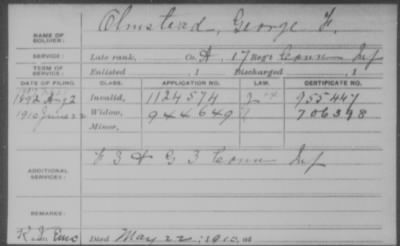 Olmstead, George F.
NAME OF SOLDIER:
SERVICE: Late rank, Co. A, 17 Reg't Conn Inf
TERM OF SERVICE: Enlisted , 1 Discharged , 1
DATE OF FILING. CLASS. APPLICATION NO. LAW. CERTIFICATE NO.
1892 Aug 2 Invalid, 1124574 955447
1910 June 22 Widow, 944649 706398
Minor,
ADDITIONAL SERVICES: G 3 Conn Inf
REMARKS:
Died May 22, 1910,